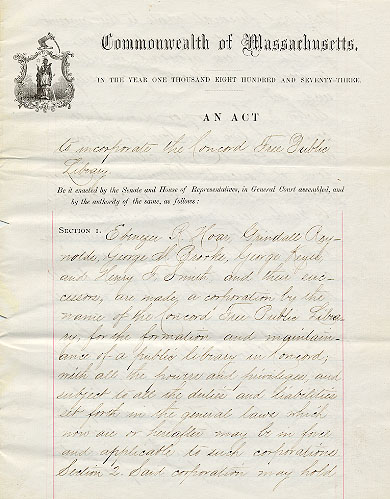 Commonwealth of Massachusetts,
IN THE YEAR ONE THOUSAND EIGHT HUNDRED AND SEVENTY-THREE.
AN ACT
to incorporate the Concord Free Public
Library.
Be it enacted by the Senate and House of Representatives, in General Court assembled, and
by the authority of the same, as follows:
SECTION 1. Ebenezer R. Hoar, Grindall Rey-
nolds, George M. Brooks, George Keyes
and Henry F. Smith, and their suc-
cessors, are made, a corporation by the
name of the Concord Free Public Libra-
ry, for the formation and maintain-
ance of a public library in Concord;
with all the powers and privileges and
subject to all the duties and liabilities
set forth in the general laws which
now are or hereafter may be in force
and applicable to such corporations.
Section 2. Said corporation may hold